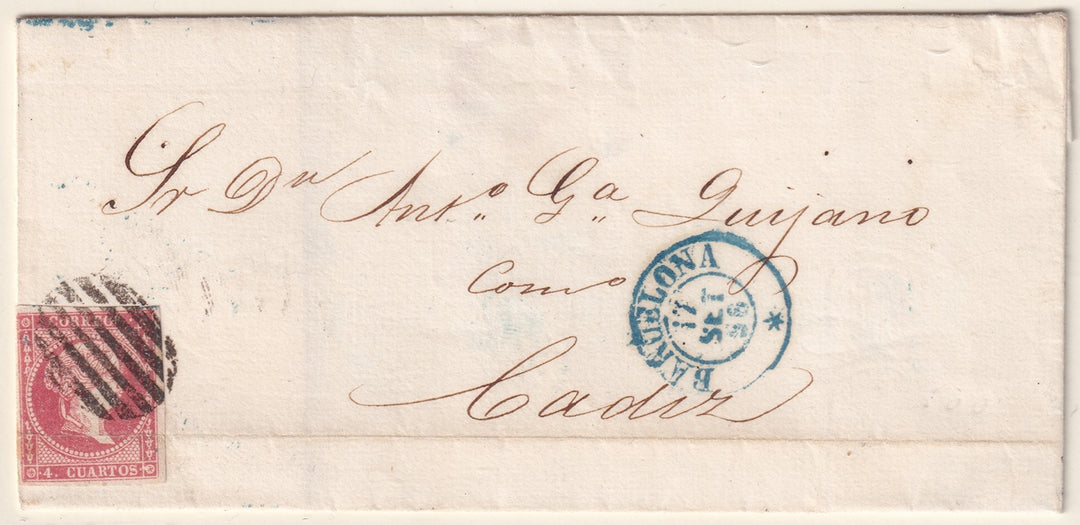 Sr Dn Anto. Ga. Quijano
Como
Cadiz
BARCELONA
17
SET
56
CORREOS
4. CUARTOS